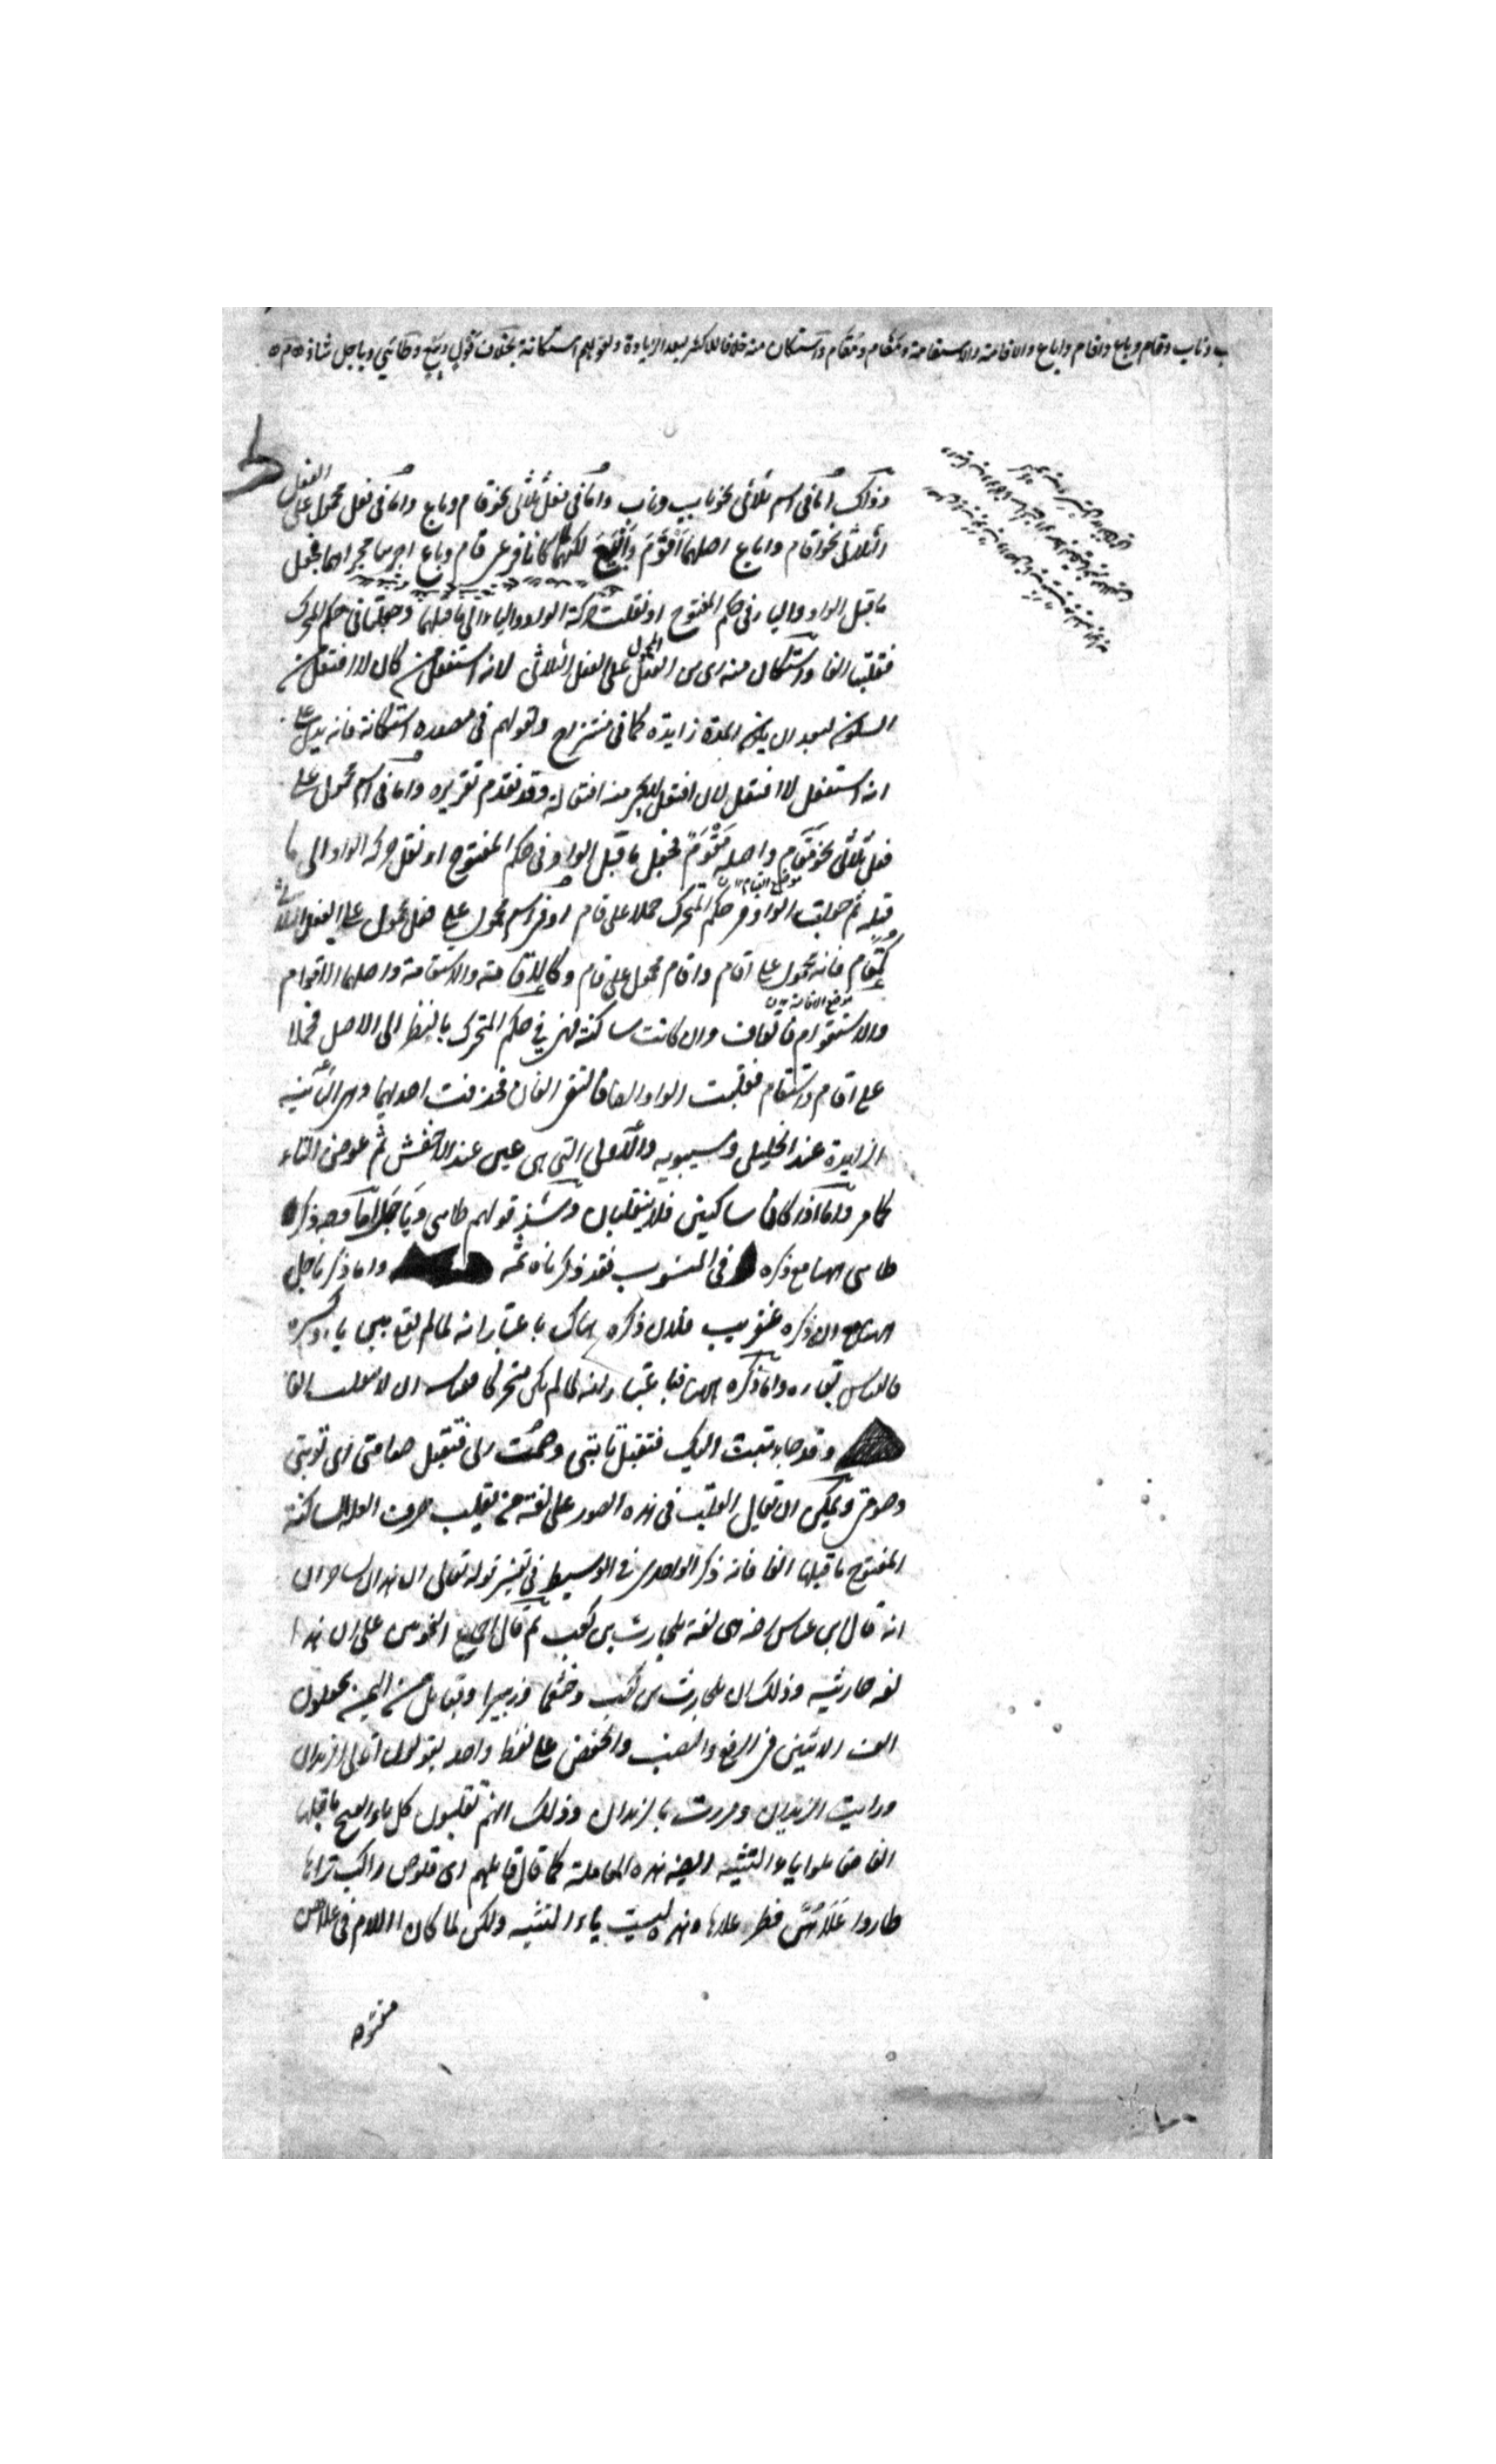 ب وناب وقام وباع واقام واباع والاقامة والاستقامة ومَقَام ومُقَام واستكان منه خلافا للاكثر لبعد الزيادة ولقولهم استكانة بخلاف قول وبيع وطائي وياجل شاذ
وذلك اما فى اسم ثلاثى نحو باب وناب واما فى فعل ثلاثى نحو قام وباع واما فى فعل محمول على الفعل
الثلاثى نحو اقام واباع اصلهما اَقْوَمَ واَبْيَعَ لكنهما لما كانا فرعى قام وباع اجريا مجراهما بجعل
ما قبل الواو والياء فى حكم المفتوح او نقلت حركة الواو والياء الى ما قبلهما وجعلتا فى حكم المتحرك
فقلبتا الفا واستكان منه اى من الفعل المحمول على الفعل الثلاثى لانه استفعل من كان لا افتعل من
السكون لبعد ان يكون المدة زايدة كما فى منتزاح وقولهم فى مصدره استكانة فانه يدل على
انه استفعل لا افتعل لان افتعل لم يجئ منه افتعالة وقد تقدم تقريره واما فى اسم محمول على
فعل ثلاثى نحو مَقَام واصله مَقْوَمٌ فجعل ما قبل الواو فى حكم المفتوح او نقل حركة الواو الى ما
قبله ثم جعلت الواو فى حكم المتحرك حملا على قام او فى اسم محمول على فعل محمول على الفعل الثلاثى
كمُقام فانه محمول على اقام واقام محمول على قام وكالاقامة والاستقامة واصلهما الاقوام
والاستقوام فالقاف وان كانت ساكنة فهى فى حكم المتحرك بالنظر الى الاصل فحملا
على اقام واستقام فقلبت الواو الفا فالتقى الفان فحذفت احديهما وهى الثانية
الزايدة عند الخليل وسيبويه والاولى التى هى عين عند الاخفش ثم عوض التاء
كما مر واما اذا كانا ساكنين فلا ينقلبان وشذ قولهم طاىى ويَاجَل اما وجه ذكره
طاىى هنا مع ذكره فى المنسوب فقد ذكرناه ثمه واما ذكر ياجل
هنا مع ان ذكره عنقريب فلان ذكره هناك باعتبار انه لما لم يقع بين ياء وكسرة
فالقياس بقاءه واما ذكره هنا فباعتبار انه لما لم يكن متحركا فقياسه ان لا تقلب الفا
وقد جاء تبت اليك فتقبل تابتى وصمت ربى فتقبل صامتى اى توبتى
وصومى ويمكن ان يقال القلب فى هذه الصور على لغة من يقلب حرف العلة الساكنة
المفتوح ما قبلها الفا فانه ذكر الواحدى فى الوسيط فى تفسير قوله تعالى ان هذان لساحران
انه قال ابن عباس رضه هى لغة بلحارث بن كعب ثم قال اجمع النحويين على ان هذا
لغة حارثيه وذلك ان بلحارث بن كعب وخثعما وزبيدا وقبايل من اليمن يجعلون
الف الاثنين فى الرفع والنصب والخفض على لفظ واحد يقولون اتانى الزيدان
ورايت الزيدان ومررت بالزيدان وذلك انهم يقلبون كل ياء انفتح ما قبلها
الفا فعاملوا ياء التثنيه ايضا هذه المعاملة كما قال قايلهم اى قلوص راكب تراها
طاروا عَلَاهُنَّ فطر علاها وهذه ليست ياء التثنيه ولكن لما كان اللام فى علاهن
مفتوحه